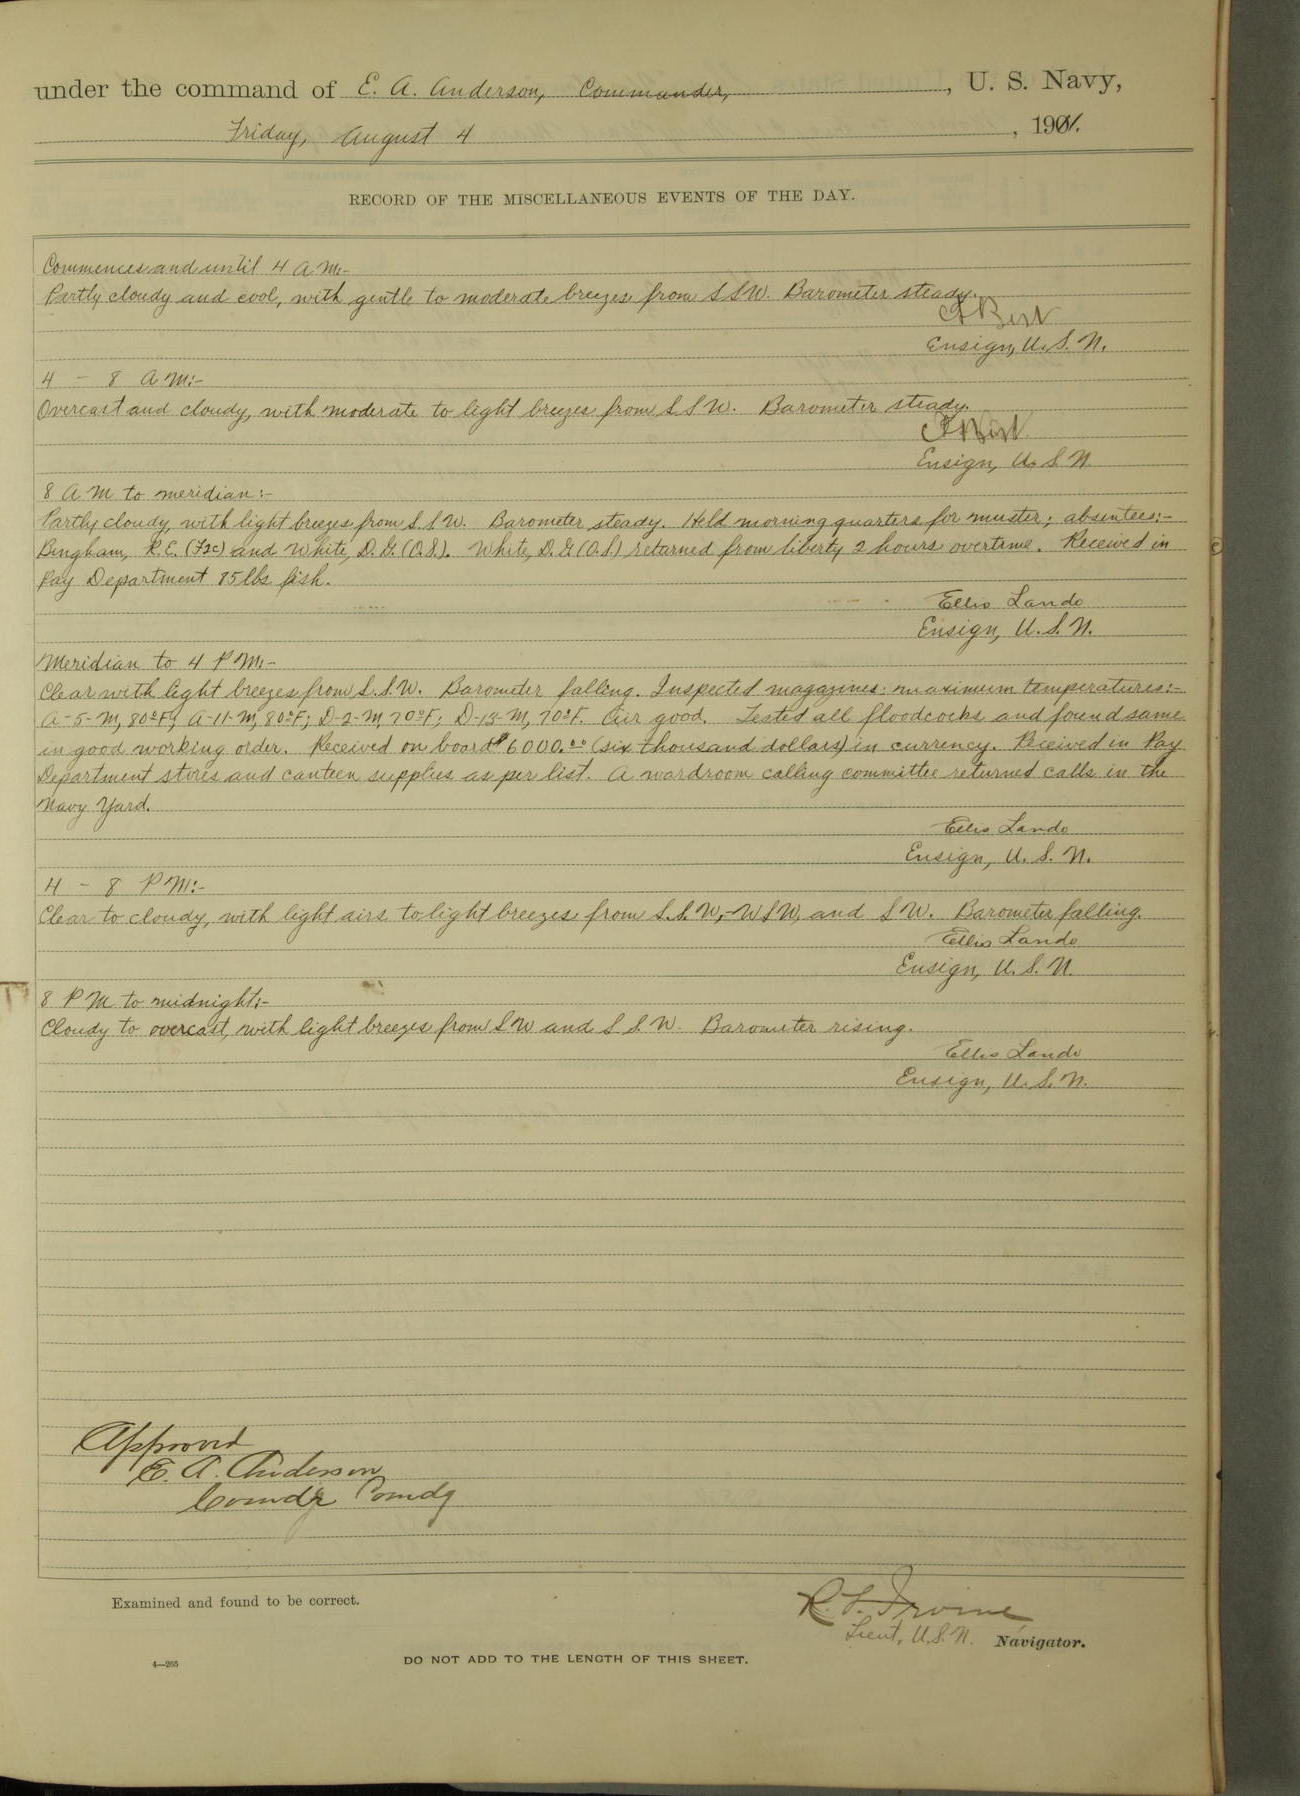 under the command of E. A. Anderson, Commander, , U. S. Navy,
Friday, August 4 , 191.
RECORD OF THE MISCELLANEOUS EVENTS OF THE DAY.
Commences and until 4 A M:-
Partly cloudy and cool, with gentle to moderate breezes from S S W. Barometer steady.
Ensign, U. S. N.
4 - 8 A M:-
Overcast and cloudy, with moderate to light breezes from S S W. Barometer steady.
Ensign, U. S N
8 A M to meridian:-
Partly cloudy, with light breezes from S. S W. Barometer steady. Held morning quarters for muster; absentees:-
Bingham, R. E. (F2c) and White, D. G. (O.S.). White, D. G (O.S) returned from liberty 2 hours overtime. Received in
Pay Department 85 lbs fish.
Ellis Lando
Ensign, U. S. N.
Meridian to 4 P M:-
Clear with light breezes from S. S. W. Barometer falling. Inspected magazines: maximum temperatures:-
A-5-M, 80°F; A-11-M, 80°F; D-2-M 70°F; D-13-M, 70°F. Air good. Tested all floodcocks and found same
in good working order. Received on board $6000.00 (six thousand dollars) in currency. Received in Pay
Department stores and canteen supplies as per list. A wardroom calling committee returned calls in the
Navy Yard.
Ellis Lando
Ensign, U. S. N.
4 - 8 P M:-
Clear to cloudy, with light airs to light breezes from S. S. W, - W S W, and S W. Barometer falling.
Ellis Lando
Ensign, U. S. N.
8 P M to midnight:-
Cloudy to overcast, with light breezes from S W and S S. W. Barometer rising.
Ellis Lando
Ensign, U. S. N.
Approved
E. A. Anderson
Comdr Comdg
Examined and found to be correct.
R. L. Irvine
Lieut, U.S.N. Navigator.
4—265
DO NOT ADD TO THE LENGTH OF THIS SHEET.